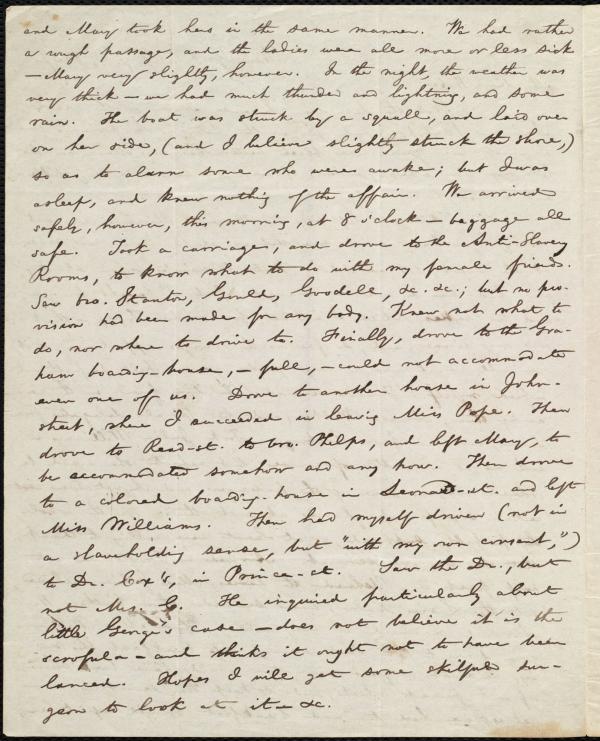 and Mary took hers in the same manner. We had rather
a rough passage, and the ladies were all more or less sick
— Mary very slightly, however. In the night, the weather was
very thick — we had much thunder and lightning, and some
rain. The boat was struck by a squall, and laid over
on her side, (and I believe slightly struck the shore,)
so as to alarm some who were awake; but I was
asleep, and knew nothing of the affair. We arrived
safely, however, this morning, at 8 o'clock — baggage all
safe. Took a carriage, and drove to the Anti-Slavery
Rooms, to know what to do with my female friends.
Saw bro. Stanton, Gould, Goodell, &c. &c.; but no pro-
vision had been made for any body. Knew not what to
do, nor where to drive to. Finally, drove to the Gra-
ham boarding-house, — full, — could not accommodate
even one of us. Drove to another house in John-
street, where I succeeded in leaving Miss Pope. Then
drove to Read-st. to bro. Phelps, and left Mary, to
be accommodated somehow and any how. Then drove
to a colored boarding-house in Leonard-st. and left
Miss Williams. Then had myself driven (not in
a slaveholding sense, but "with my own consent,")
to Dr. Cox's, in Prince-st. Saw the Dr., but
not Mrs. C. He inquired particularly about
little George's case — does not believe it is the
scrofula — and thinks it ought not to have been
lanced. Hopes I will get some skilful sur-
geon to look at it — &c.